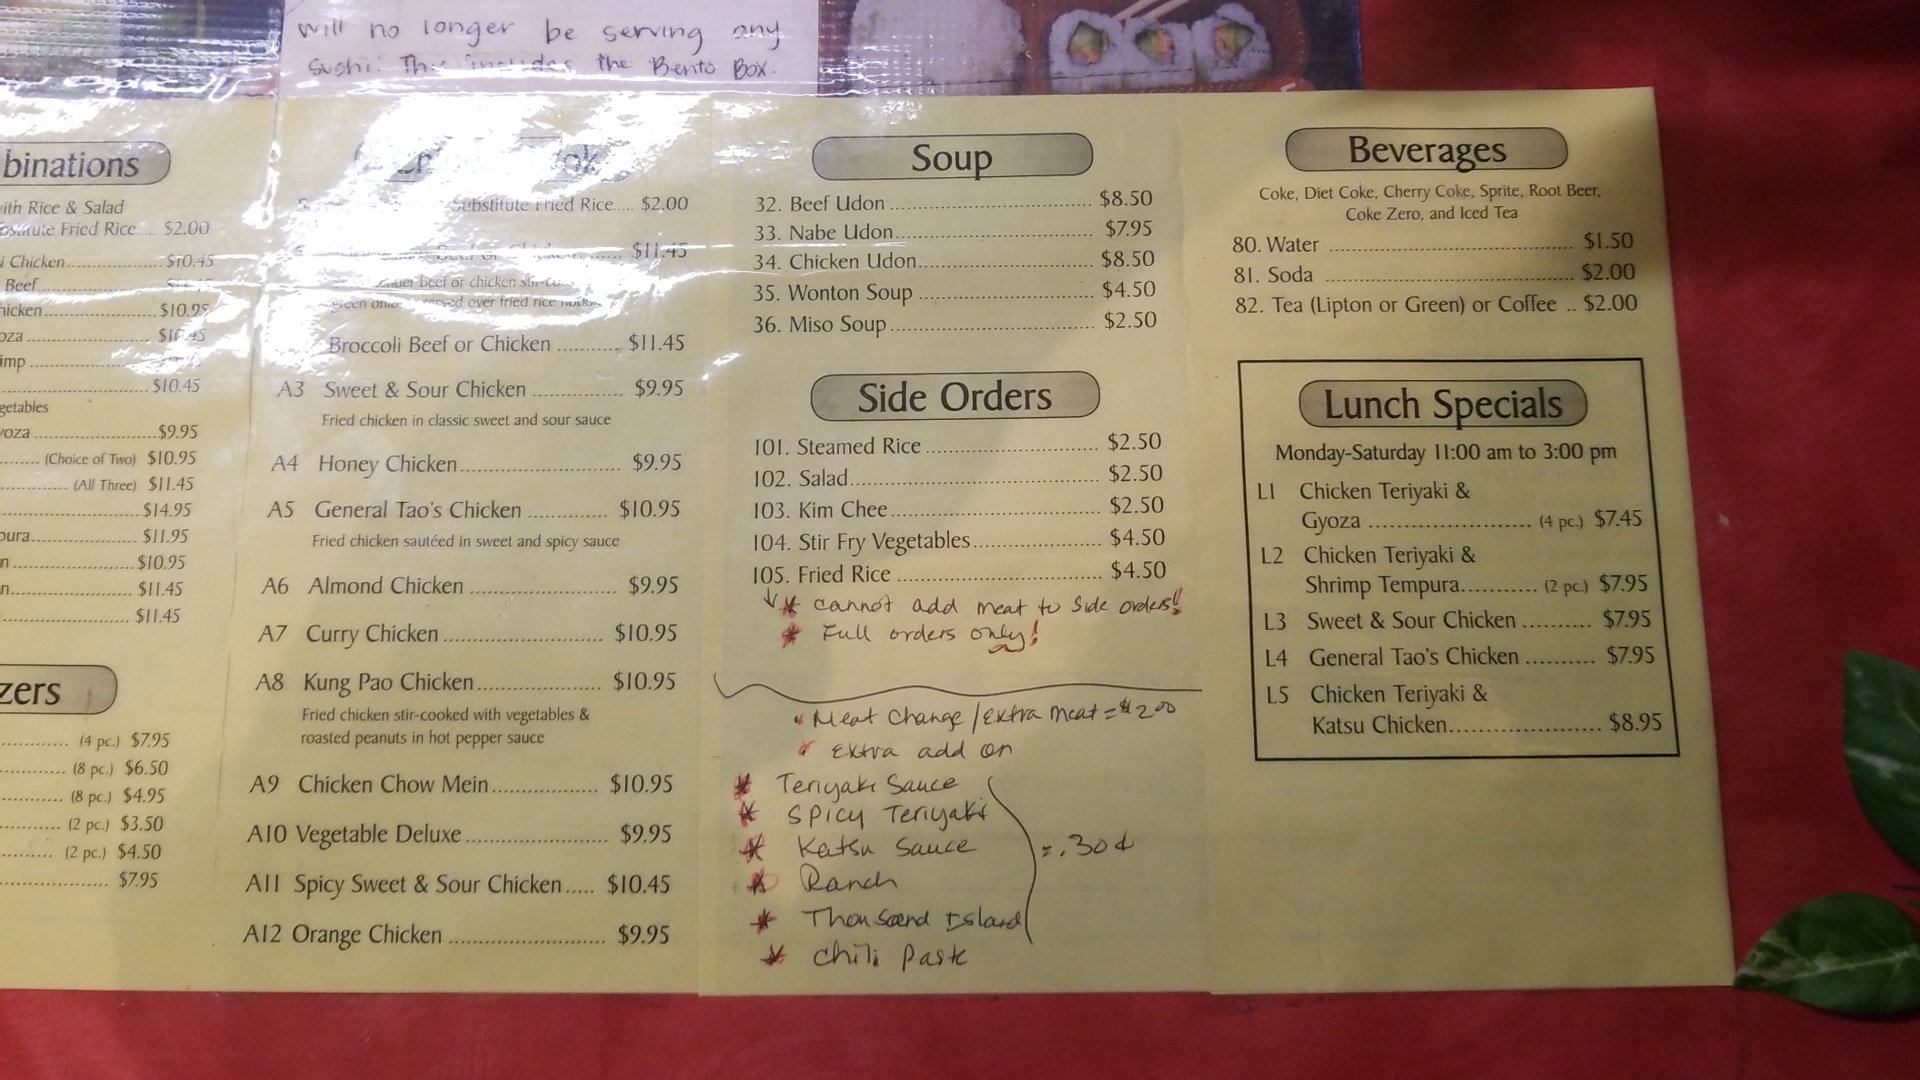 will no longer be serving any
sushi. This includes the Bento Box.
binations
with Rice & Salad
Substitute Fried Rice..... $2.00
i Chicken.................... $10.45
Beef
hicken...................... $10.95
oza
imp
$10.45
getables
yoza ......................... $9.95
........ (Choice of Two) $10.95
.............. (All Three) $11.45
................................ $14.95
pura......................... $11.95
n............................. $10.95
n............................. $11.45
............................... $11.45
zers
.............. (4 pc.) $7.95
.............. (8 pc.) $6.50
.............. (8 pc.) $4.95
.............. (2 pc.) $3.50
.............. (2 pc.) $4.50
........................ $7.95
Substitute Fried Rice..... $2.00
Beef or Chicken ........ $11.45
beef or chicken
green onion served over fried rice noodles
Broccoli Beef or Chicken ........... $11.45
A3 Sweet & Sour Chicken .................. $9.95
Fried chicken in classic sweet and sour sauce
A4 Honey Chicken............................. $9.95
A5 General Tao's Chicken .............. $10.95
Fried chicken sautéed in sweet and spicy sauce
A6 Almond Chicken .......................... $9.95
A7 Curry Chicken ............................ $10.95
A8 Kung Pao Chicken...................... $10.95
Fried chicken stir-cooked with vegetables &
roasted peanuts in hot pepper sauce
A9 Chicken Chow Mein................... $10.95
A10 Vegetable Deluxe ......................... $9.95
A11 Spicy Sweet & Sour Chicken..... $10.45
A12 Orange Chicken ............................ $9.95
Soup
32. Beef Udon .................................... $8.50
33. Nabe Udon................................... $7.95
34. Chicken Udon............................... $8.50
35. Wonton Soup ............................... $4.50
36. Miso Soup .................................... $2.50
Side Orders
101. Steamed Rice ............................... $2.50
102. Salad............................................. $2.50
103. Kim Chee ..................................... $2.50
104. Stir Fry Vegetables....................... $4.50
105. Fried Rice ..................................... $4.50
↓* cannot add meat to side orders!
* Full orders only!
* Meat Change / Extra meat = $2.00
* extra add on
* Teriyaki Sauce
* Spicy Teriyaki
* Katsu Sauce = .30¢
* Ranch
* Thousand Island
* Chili Paste
Beverages
Coke, Diet Coke, Cherry Coke, Sprite, Root Beer,
Coke Zero, and Iced Tea
80. Water ............................................ $1.50
81. Soda .............................................. $2.00
82. Tea (Lipton or Green) or Coffee .. $2.00
Lunch Specials
Monday-Saturday 11:00 am to 3:00 pm
L1 Chicken Teriyaki &
Gyoza ............................ (4 pc.) $7.45
L2 Chicken Teriyaki &
Shrimp Tempura............ (2 pc.) $7.95
L3 Sweet & Sour Chicken .......... $7.95
L4 General Tao's Chicken .......... $7.95
L5 Chicken Teriyaki &
Katsu Chicken....................... $8.95